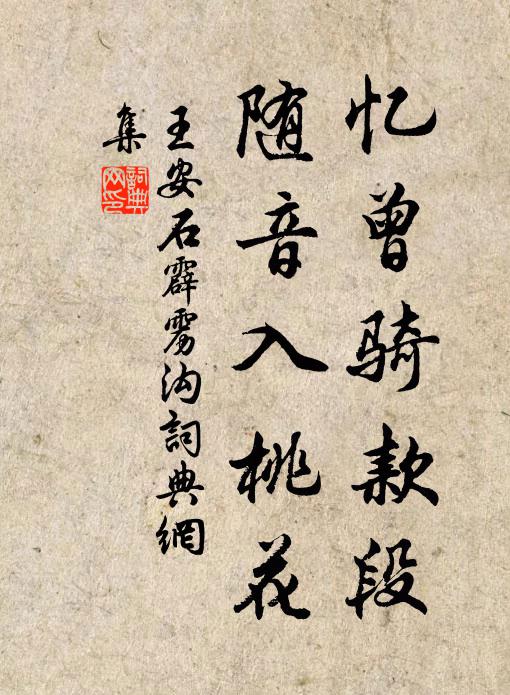 忆曾骑款段
随音入桃花
王安石霹雳沟詞典網
集
詞典
网印